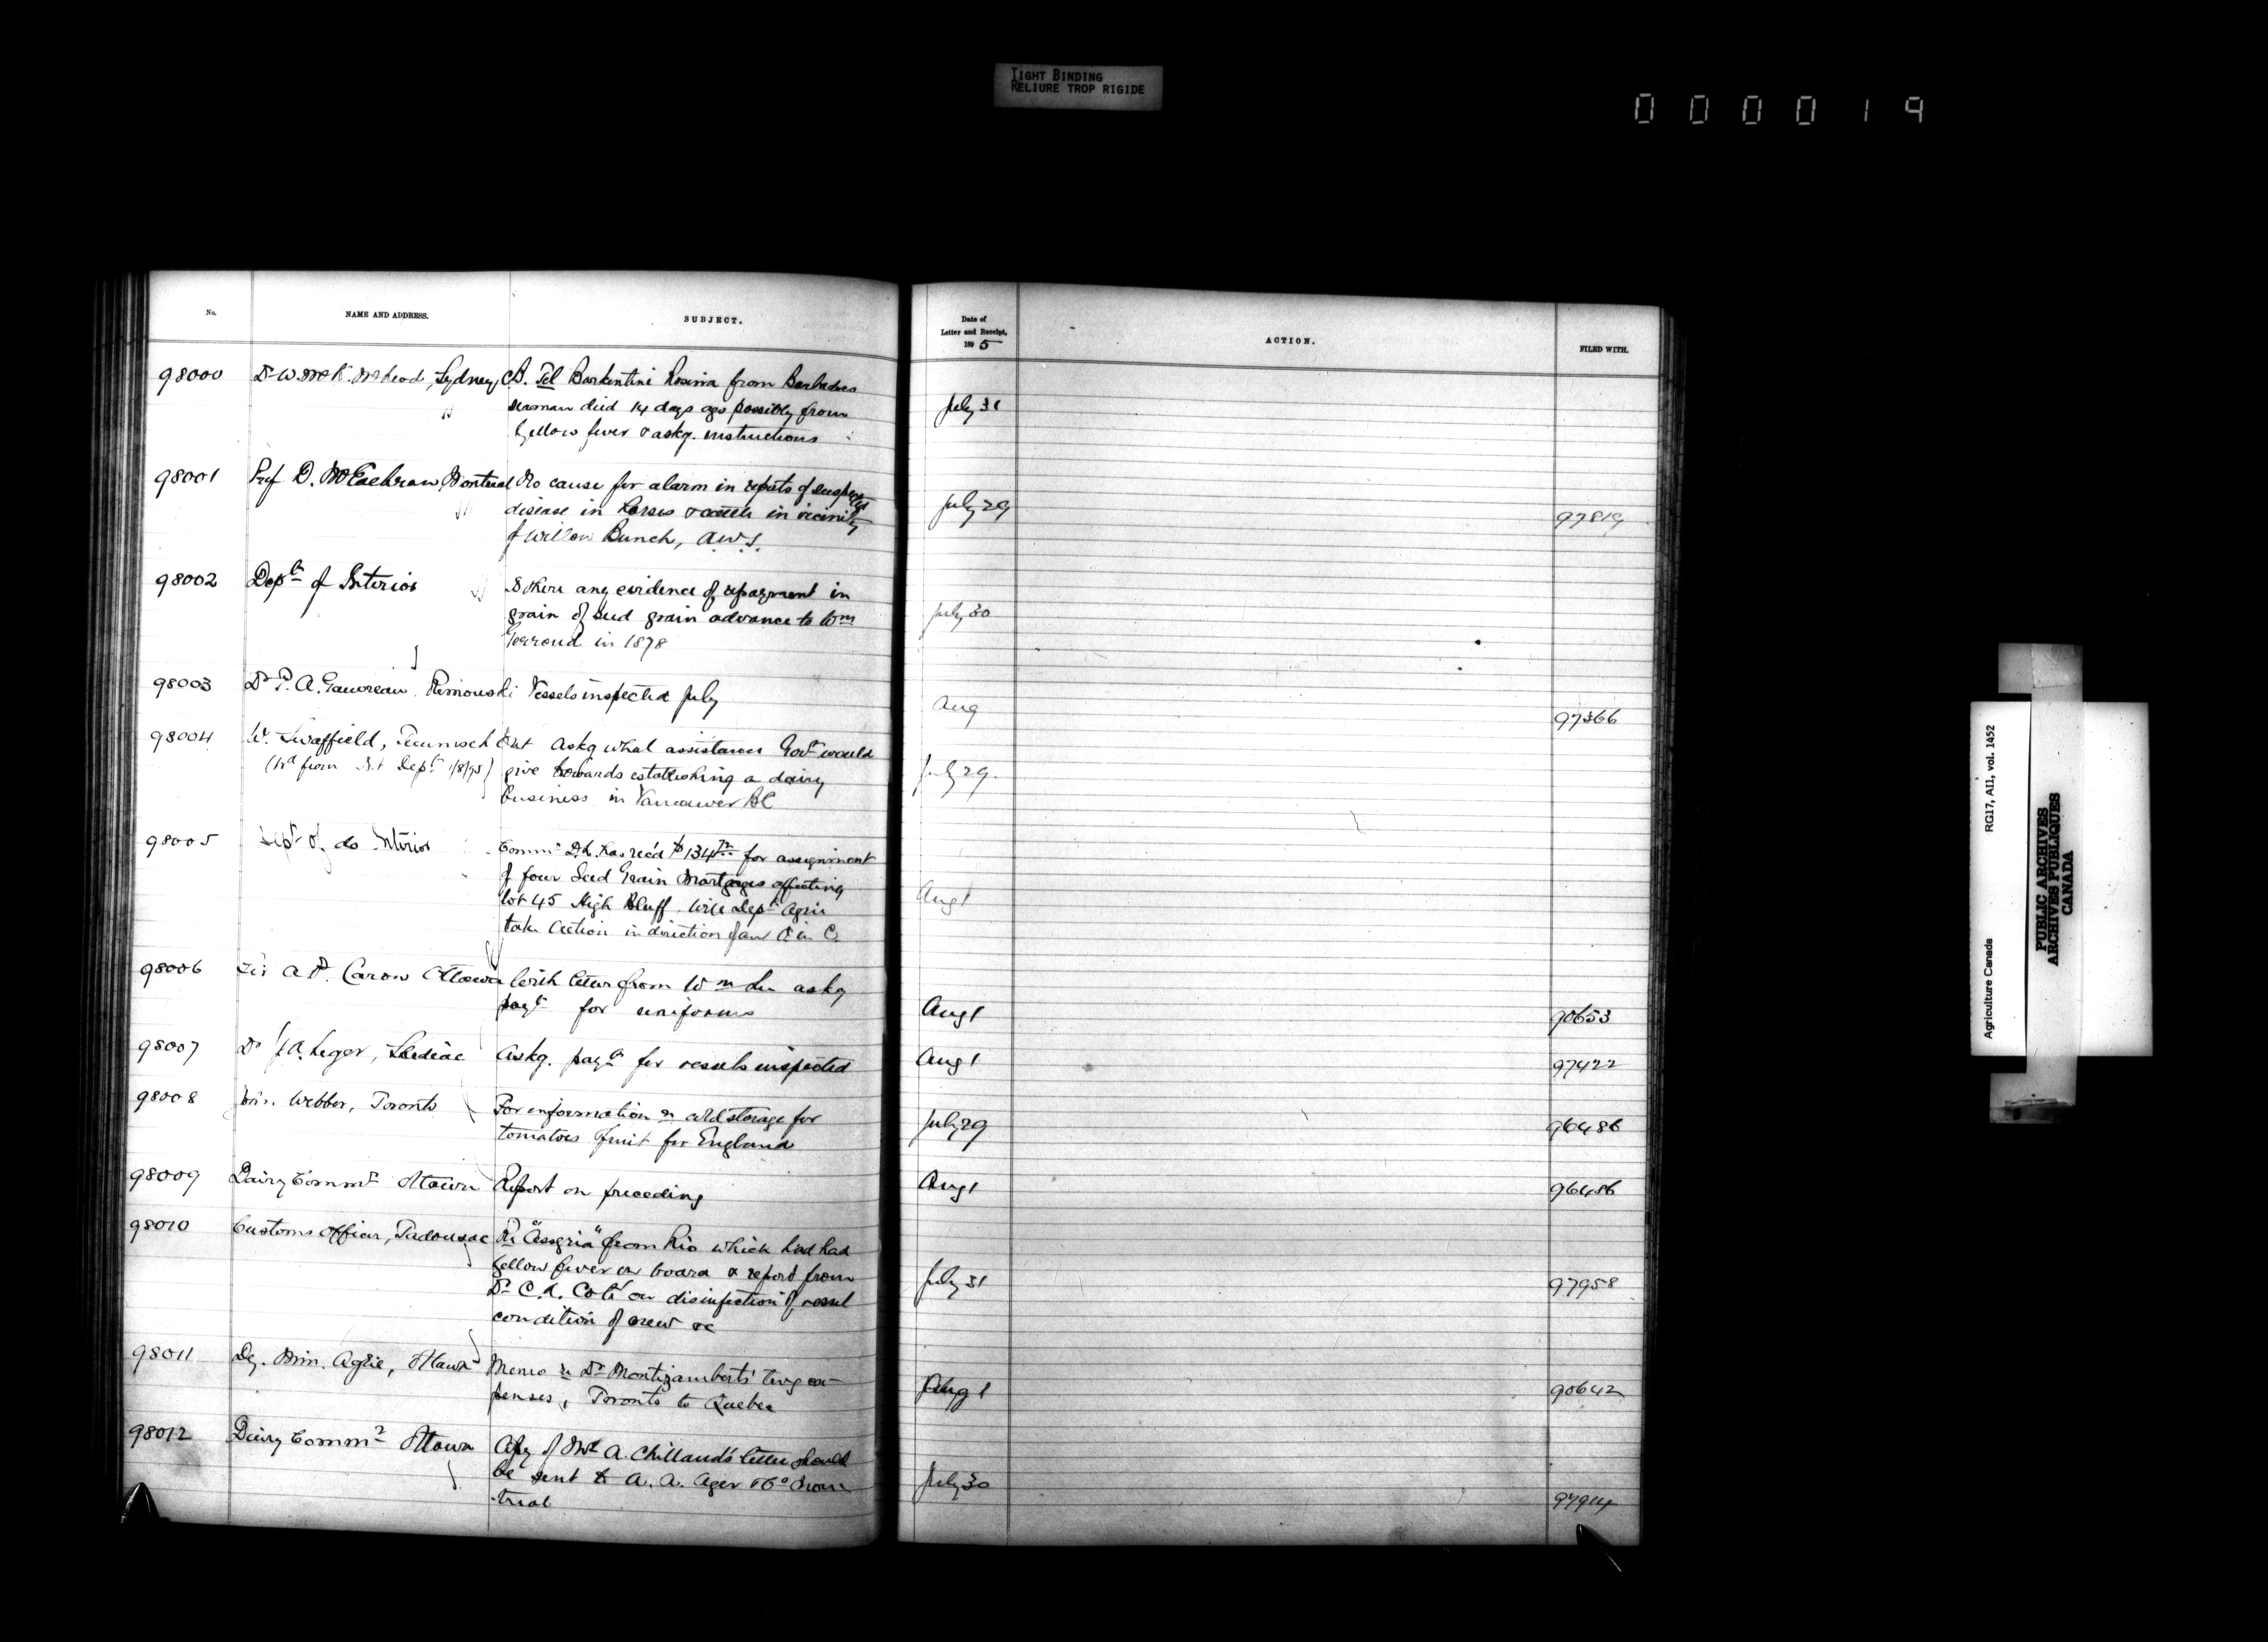 TIGHT BINDING
RELIURE TROP RIGIDE
000019
No. NAME AND ADDRESS. SUBJECT. Date of Letter and Receipt, 1895 ACTION. FILED WITH.
98000 Dr W. McK. McLeod, Sydney, C.B. Tel Barkentine Rosina from Barbadoes
seaman died 14 days ago possibly from July 31
yellow fever & askg. instructions
98001 Prof D. McEachran, Montreal No cause for alarm in reports of suspected
disease in horses & cattle in vicinity July 29 97819
of Willow Bunch, Awl.
98002 Dept of Interior Is there any evidence of repayment in
grain of seed grain advance to Wm July 30
in 1878
98003 Dr P. A. Gauvreau Rimouski Vessels inspected July Aug 97366
98004 W. Swaffield, Tecumseh Ont Askg what assistance Govt would
(td from Dept 1/8/95) give towards establishing a dairy July 29.
business in Vancouver BC
98005 Dept of do Interior Commr D.L. has rec'd $134 for assignment
of four Seed Grain Mortgages affecting
lot 45 High Bluff. Will Dept Agric Aug 1
take action in direction of an O in C.
98006 Sir A. P. Caron Ottawa With letter from Wm Lee askg
payt for uniforms Aug 1 90653
98007 Dr J. A. Leger, Shediac Askg. payt for vessels inspected Aug 1 97422
98008 Webber, Toronto For information re cold storage for
tomatoes fruit for England July 29 96486
98009 Dairy Commr Ottawa Report on preceding Aug 1 96486
98010 Customs Officer, Tadousac Re "Assyria" from Rio which had had
yellow fever on board & report from
Dr C. A. Coté on disinfection of vessel July 31 97958
condition of crew &c
98011 Dy. Min. Agric, Ottawa Memo re Dr Montizambert's tvg ex-
penses, Toronto to Quebec Aug 1 90642
98012 Dairy Commr Ottawa Copy of Mr A. Chillaud's letter should
be sent to A. A. Ager July 30
trial 97914
Agriculture Canada RG17, AII, vol. 1452
PUBLIC ARCHIVES
ARCHIVES PUBLIQUES
CANADA